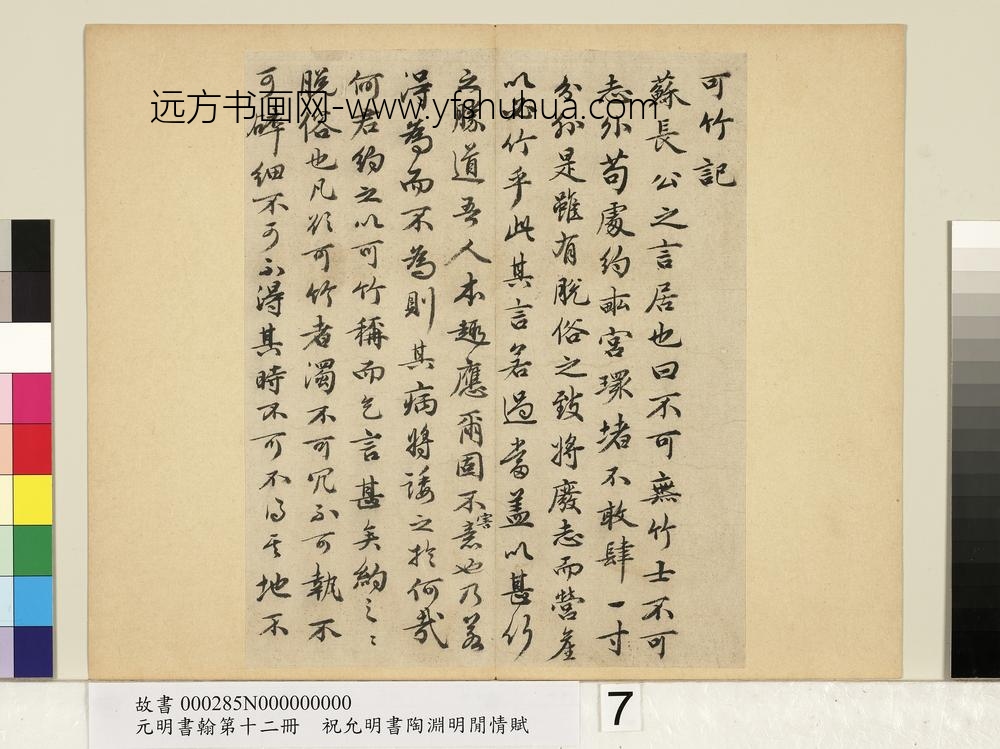 可竹記
蘇長公之言居也曰不可無竹士不可
志不苟處約畝宮環堵不敢肆一寸
分外是雖有脫俗之致將廢志而營產
以竹乎此其言若過當蓋以甚竹
之勝道吾人本趣應爾固不害意也乃若
得為而不為則其病將諉之於何哉
何君約之以可竹稱而乞言甚矣約之之
脫俗也凡欲可竹者濁不可冗不可執不
可碎細不可不得其時不可不得其地不
远方书画网-www.yfshuhua.com
故書 000285N000000000
元明書翰第十二冊 祝允明書陶淵明閒情賦
7